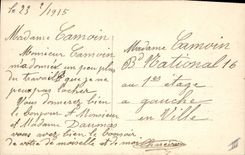 le 23 2/1915
Madame Camoin
Monsieur Camoin
m'a donné un peu plus
du travail que je ne
peux pas lâcher
Vous donnerez bien
le bonjour à Monsieur
et Madame Daumas
vous avez bien le bonsoir
de votre de moiselle et de moi
Madame Camoin
Bd National 16
au 1er étage
à gauche
en Ville